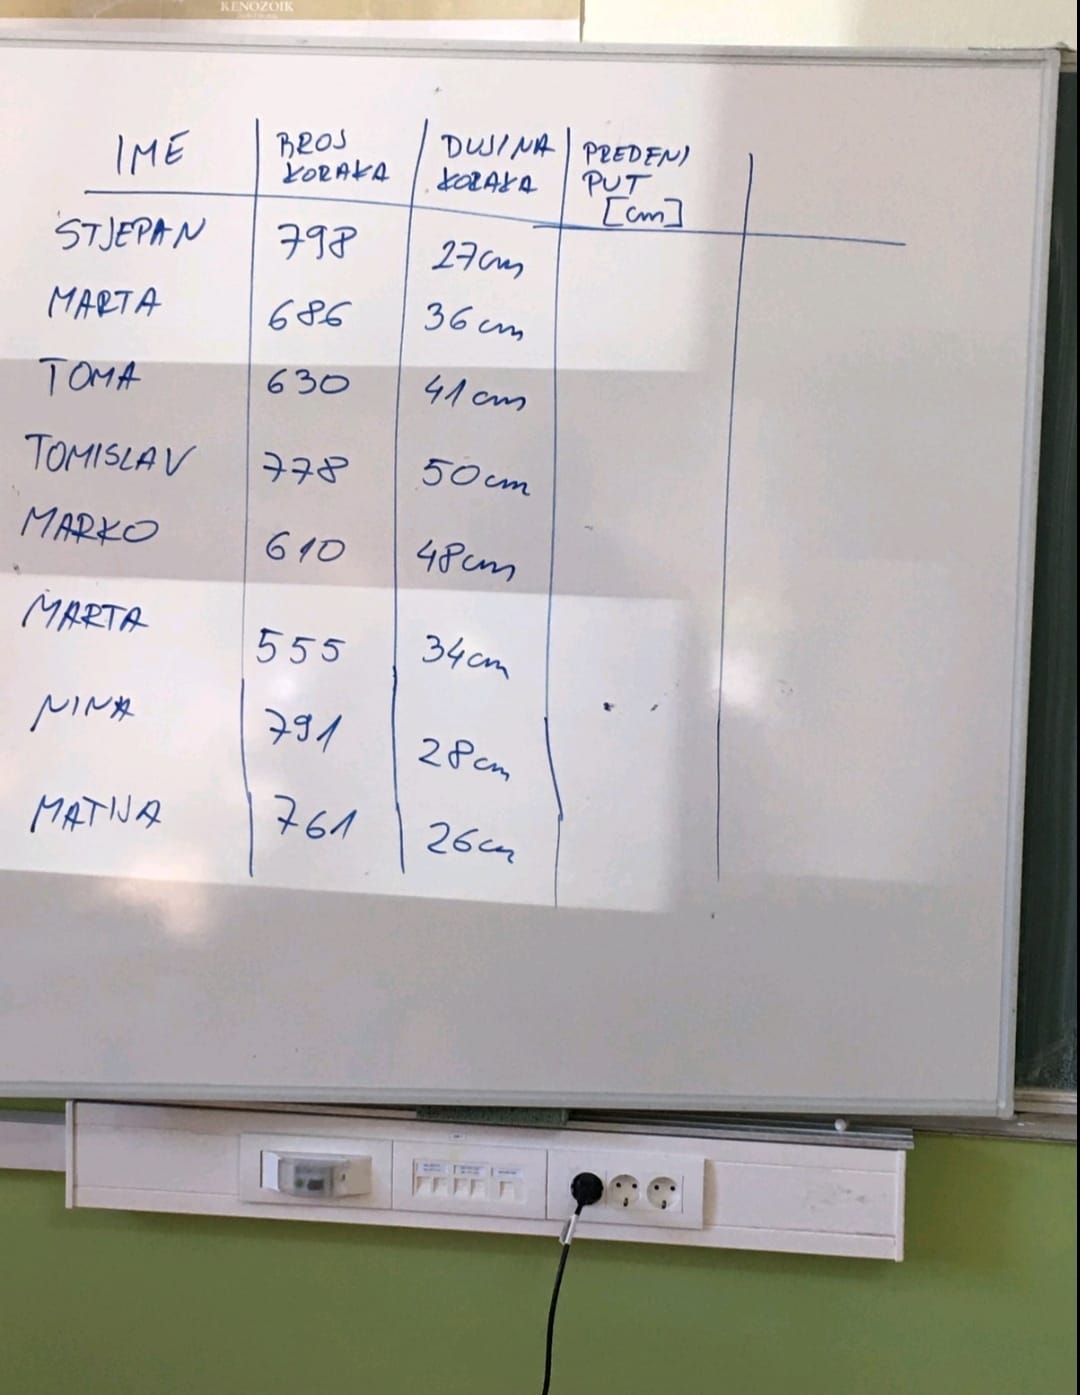 KENOZOIK
IME | BROJ KORAKA | DULJINA KORAKA | PREĐENI PUT [cm]
STJEPAN 798 27cm
MARTA 686 36cm
TOMA 630 41cm
TOMISLAV 778 50cm
MARKO 610 48cm
MARTA 555 34cm
NINA 791 28cm
MATIJA 761 26cm